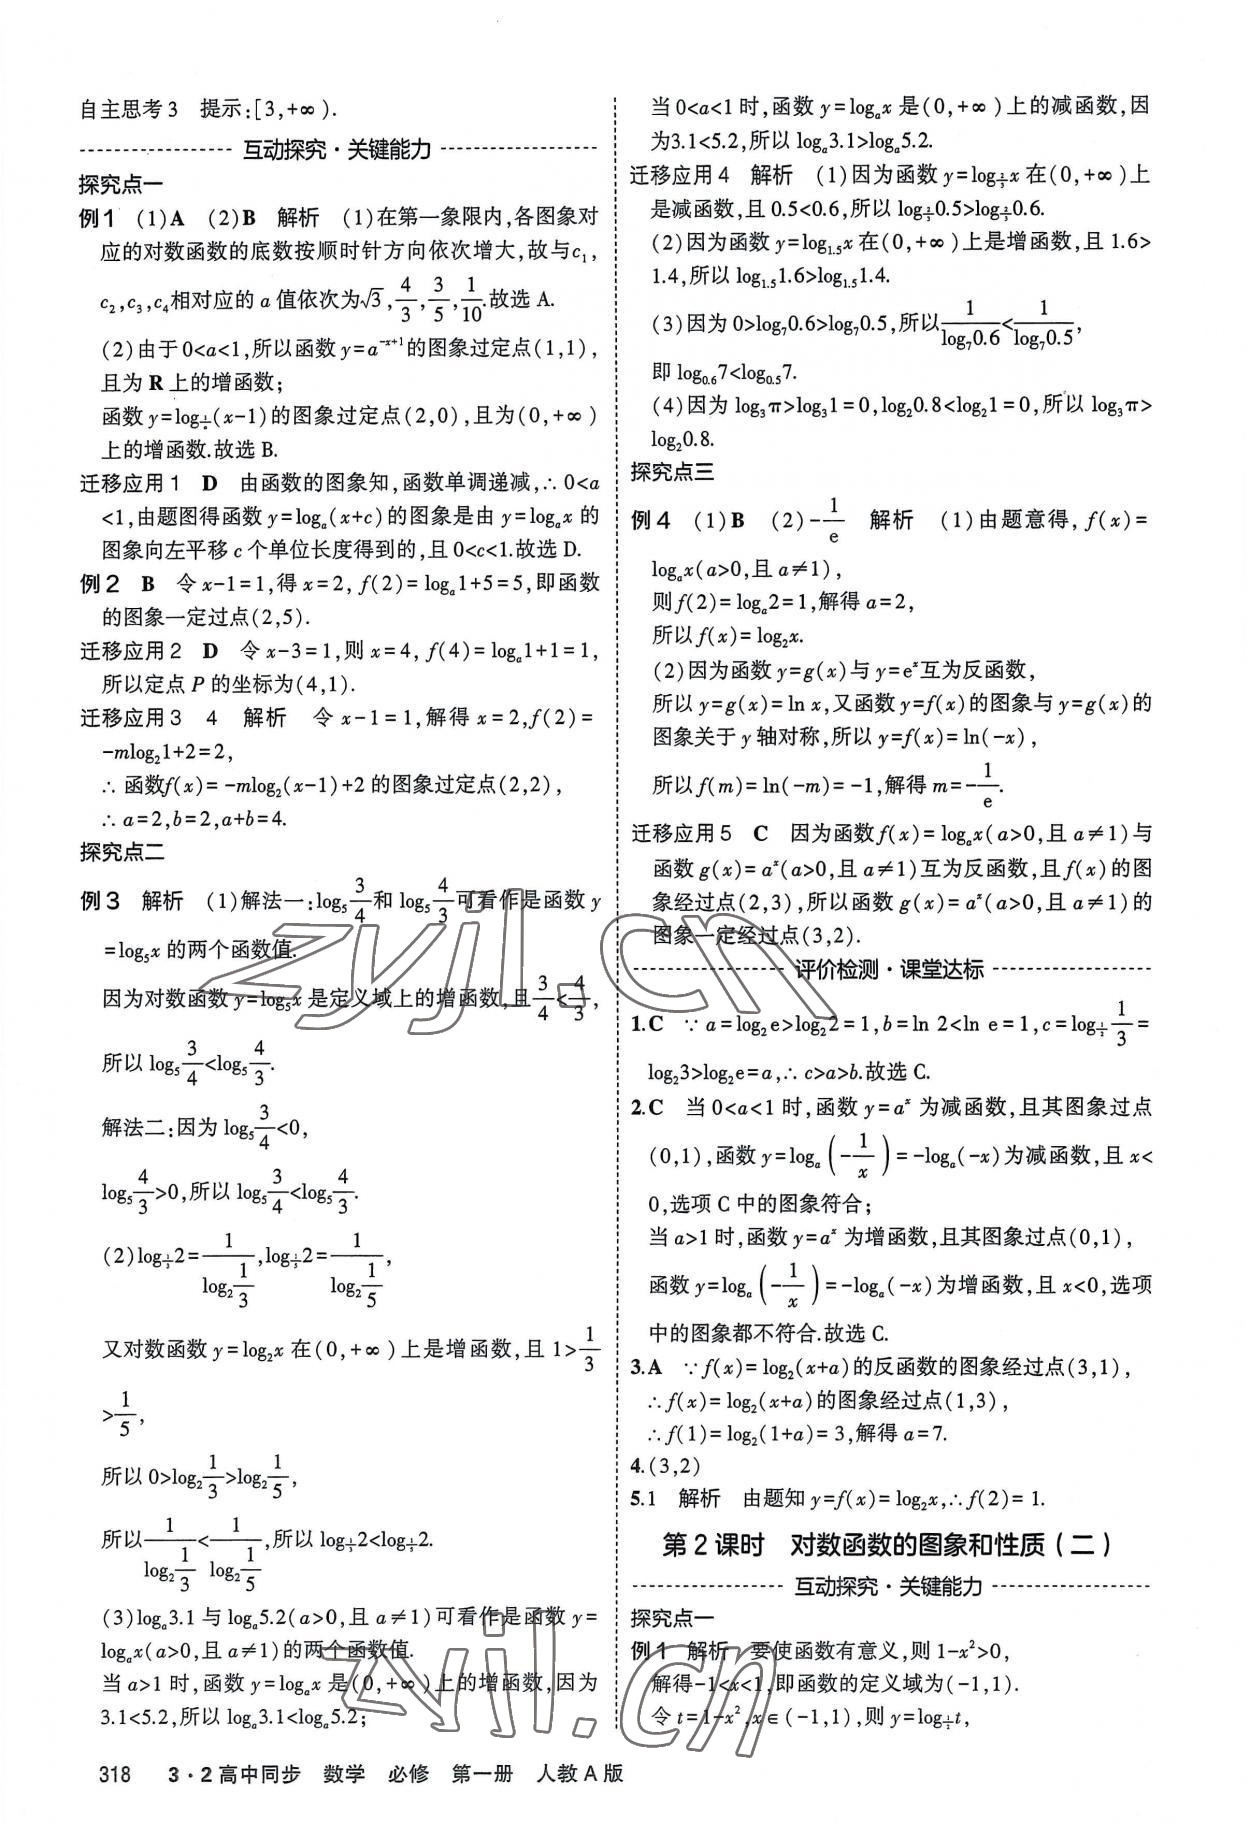 自主思考3　提示:[3,+∞).
互动探究·关键能力
探究点一
例1　(1)A　(2)B　解析　(1)在第一象限内,各图象对
应的对数函数的底数按顺时针方向依次增大,故与c₁,
c₂,c₃,c₄相对应的 a 值依次为√3,4/3,3/5,1/10.故选 A.
(2)由于0<a<1,所以函数 y=a^(-x+1)的图象过定点(1,1),
且为 R 上的增函数;
函数 y=log (x-1)的图象过定点(2,0),且为(0,+∞)
上的增函数.故选 B.
迁移应用1　D　由函数的图象知,函数单调递减,∴0<a
<1,由题图得函数 y=logₐ(x+c)的图象是由 y=logₐx 的
图象向左平移 c 个单位长度得到的,且 0<c<1.故选 D.
例2　B　令 x-1=1,得 x=2, f(2)=logₐ1+5=5,即函数
的图象一定过点(2,5).
迁移应用2　D　令 x-3=1,则 x=4, f(4)=logₐ1+1=1,
所以定点 P 的坐标为(4,1).
迁移应用3　4　解析　令 x-1=1,解得 x=2,f(2)=
-mlog₂1+2=2,
∴函数f(x)=-mlog₂(x-1)+2 的图象过定点(2,2),
∴a=2,b=2,a+b=4.
探究点二
例3　解析　(1)解法一:log₅3/4和 log₅4/3可看作是函数 y
=log₅x 的两个函数值.
因为对数函数 y=log₅x 是定义域上的增函数,且3/4<4/3,
所以 log₅3/4<log₅4/3.
解法二:因为 log₅3/4<0,
log₅4/3>0,所以 log₅3/4<log₅4/3.
(2)log_(1/3)2=1/(log₂1/3),log_(1/5)2=1/(log₂1/5),
又对数函数 y=log₂x 在(0,+∞)上是增函数,且 1>1/3
>1/5,
所以 0>log₂1/3>log₂1/5,
所以1/(log₂1/3)<1/(log₂1/5),所以 log_(1/3)2<log_(1/5)2.
(3)logₐ3.1 与 logₐ5.2(a>0,且 a≠1)可看作是函数 y=
logₐx(a>0,且 a≠1)的两个函数值.
当 a>1 时,函数 y=logₐx 是(0,+∞)上的增函数,因为
3.1<5.2,所以 logₐ3.1<logₐ5.2;
当 0<a<1 时,函数 y=logₐx 是(0,+∞)上的减函数,因
为3.1<5.2,所以 logₐ3.1>logₐ5.2.
迁移应用4　解析　(1)因为函数 y=log x 在(0,+∞)上
是减函数,且 0.5<0.6,所以 log 0.5>log 0.6.
(2)因为函数 y=log₁.₅x 在(0,+∞)上是增函数,且 1.6>
1.4,所以 log₁.₅1.6>log₁.₅1.4.
(3)因为 0>log₇0.6>log₇0.5,所以1/(log₇0.6)<1/(log₇0.5),
即 log₀.₆7<log₀.₅7.
(4)因为 log₃π>log₃1=0,log₂0.8<log₂1=0,所以 log₃π>
log₂0.8.
探究点三
例4　(1)B　(2)-1/e　解析　(1)由题意得, f(x)=
logₐx(a>0,且 a≠1),
则 f(2)=logₐ2=1,解得 a=2,
所以 f(x)=log₂x.
(2)因为函数 y=g(x)与 y=eˣ互为反函数,
所以 y=g(x)=ln x,又函数 y=f(x)的图象与 y=g(x)的
图象关于 y 轴对称,所以 y=f(x)=ln(-x),
所以 f(m)=ln(-m)=-1,解得 m=-1/e.
迁移应用5　C　因为函数 f(x)=logₐx(a>0,且 a≠1)与
函数 g(x)=aˣ(a>0,且 a≠1)互为反函数,且 f(x)的图
象经过点(2,3),所以函数 g(x)=aˣ(a>0,且 a≠1)的
图象一定经过点(3,2).
评价检测·课堂达标
1.C　∵a=log₂e>log₂2=1,b=ln 2<ln e=1,c=log 1/3=
log₂3>log₂e=a,∴c>a>b.故选 C.
2.C　当 0<a<1 时,函数 y=aˣ 为减函数,且其图象过点
(0,1),函数 y=logₐ(-1/x)=-logₐ(-x)为减函数,且 x<
0,选项 C 中的图象符合;
当 a>1 时,函数 y=aˣ 为增函数,且其图象过点(0,1),
函数 y=logₐ(-1/x)=-logₐ(-x)为增函数,且 x<0,选项
中的图象都不符合.故选 C.
3.A　∵f(x)=log₂(x+a)的反函数的图象经过点(3,1),
∴f(x)=log₂(x+a)的图象经过点(1,3),
∴f(1)=log₂(1+a)=3,解得 a=7.
4.(3,2)
5.1　解析　由题知 y=f(x)=log₂x,∴f(2)=1.
第2课时　对数函数的图象和性质(二)
互动探究·关键能力
探究点一
例1　解析　要使函数有意义,则 1-x²>0,
解得-1<x<1,即函数的定义域为(-1,1).
令 t=1-x²,x∈(-1,1),则 y=log t,
318　3·2高中同步　数学　必修　第一册　人教A版
zyjl.cn
zyjl.cn